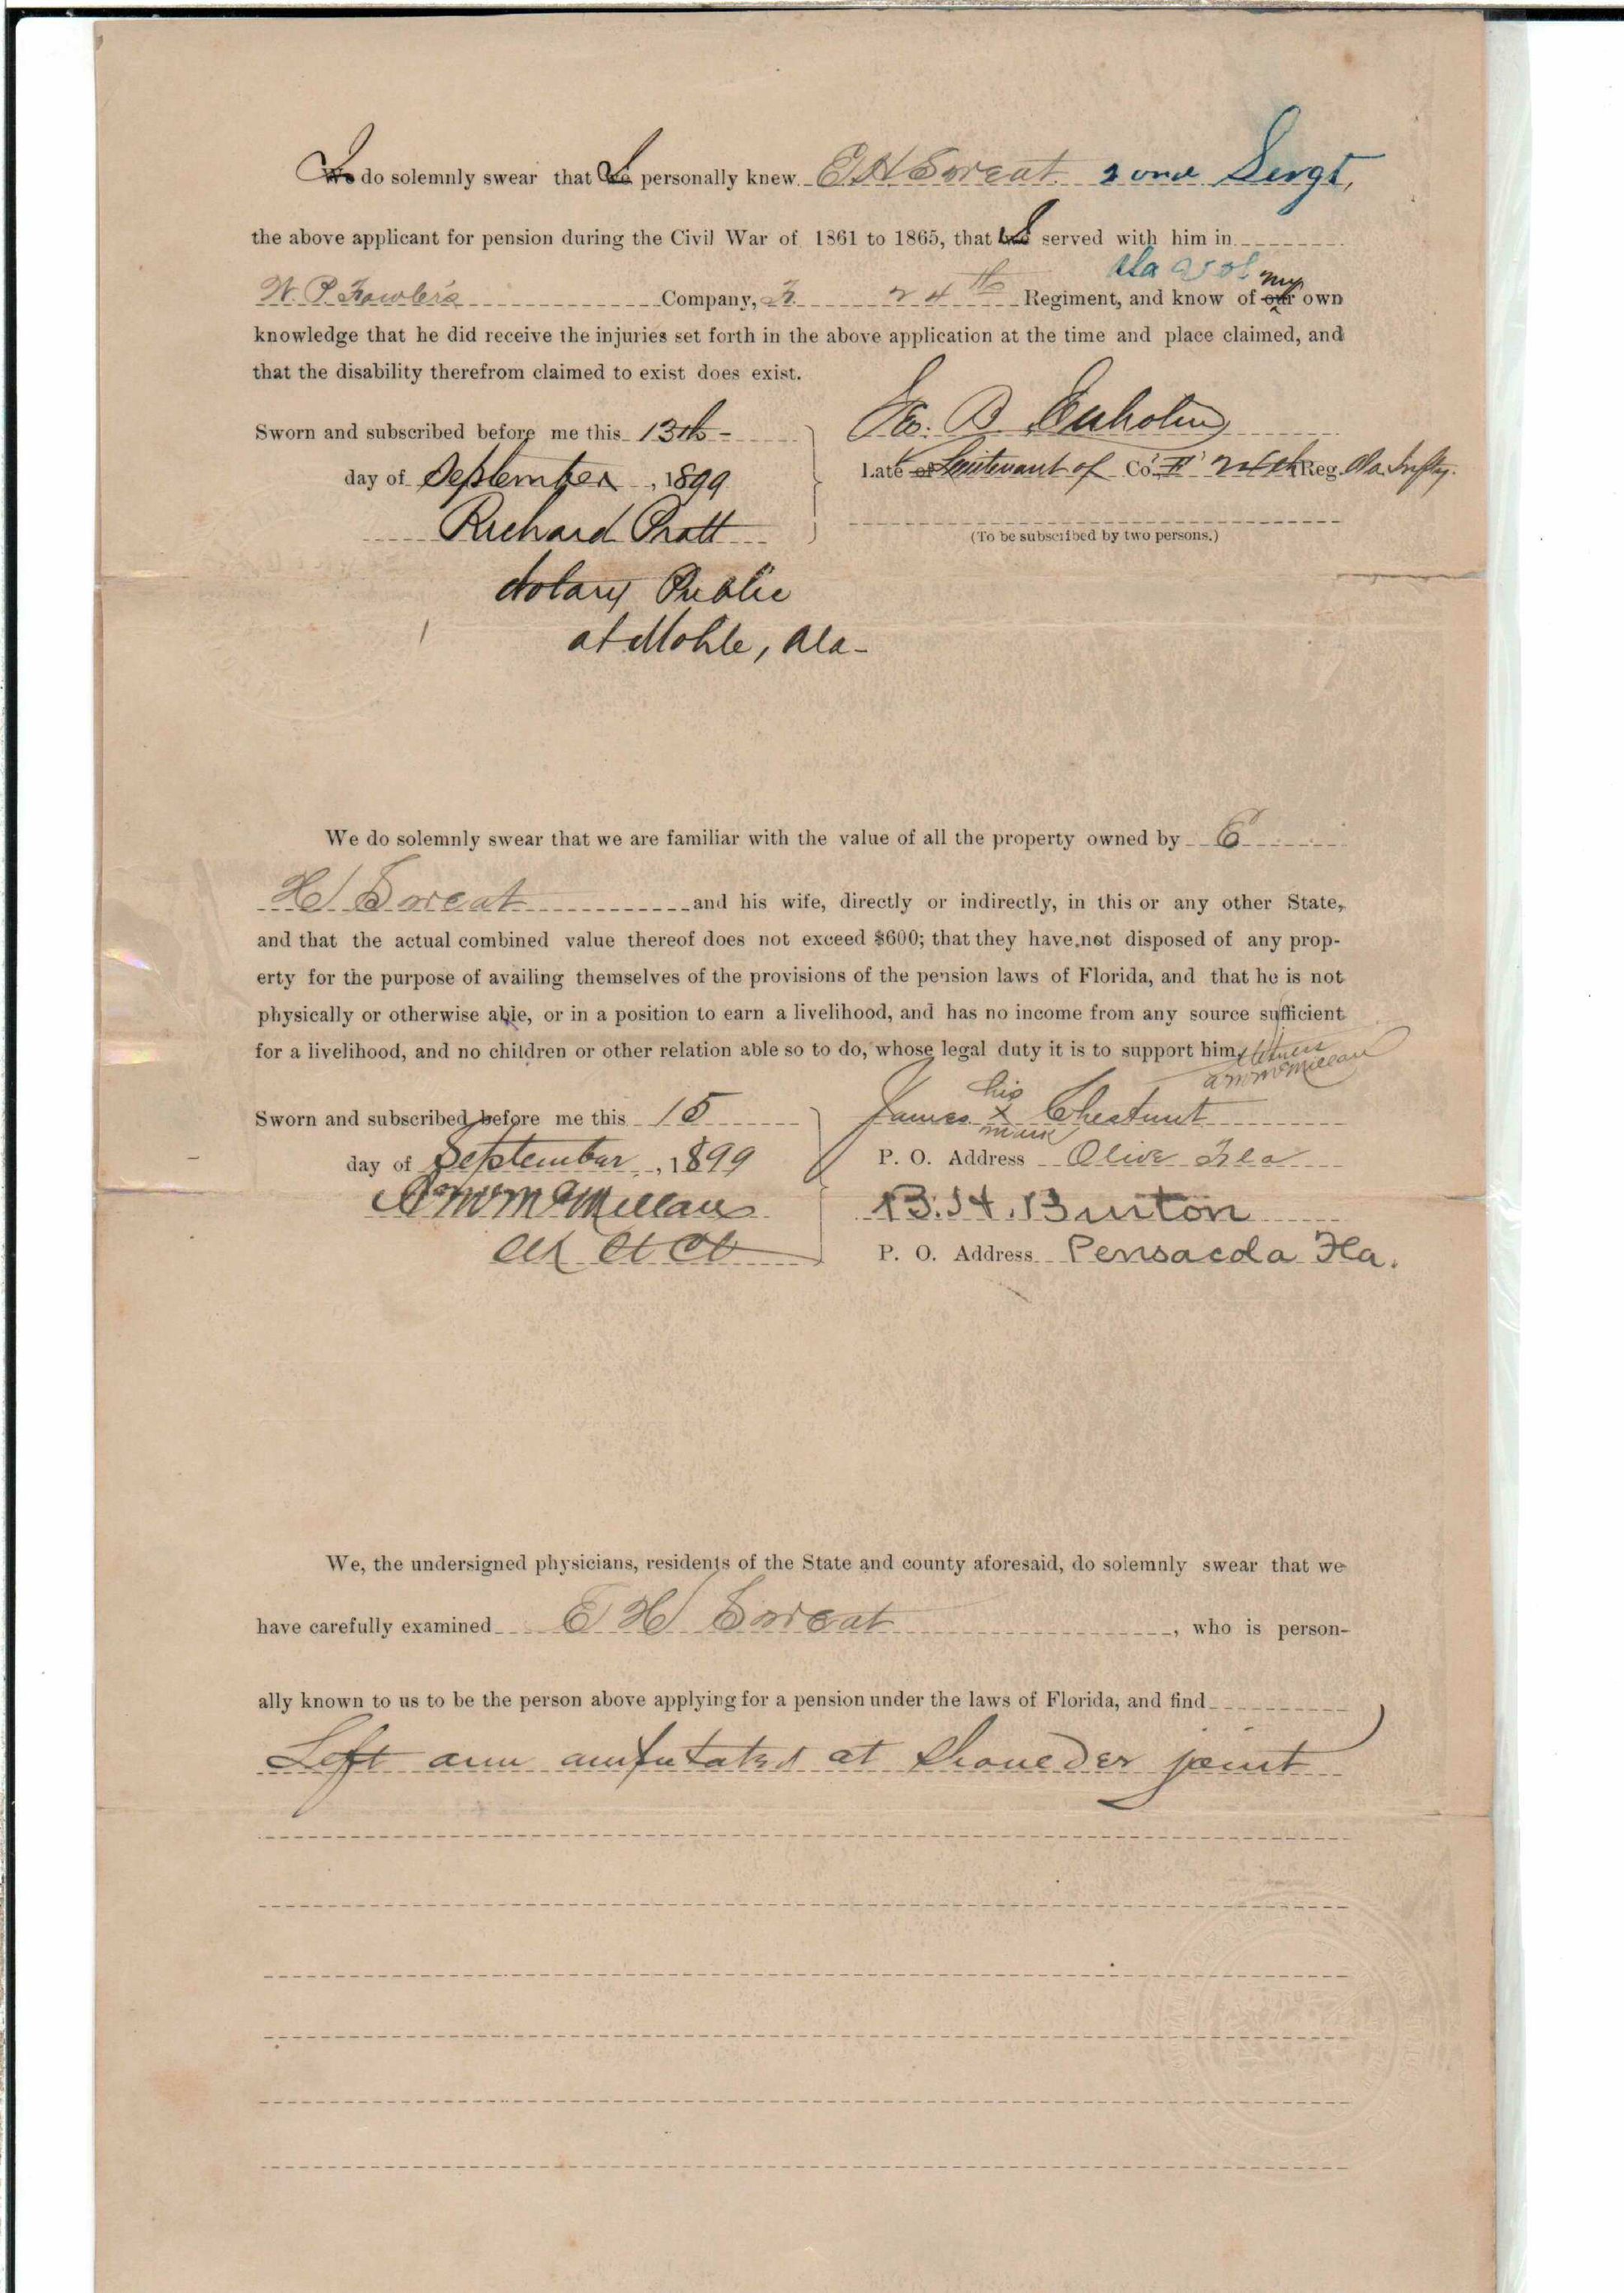 I do solemnly swear that I personally knew E H Sweat Sergt,
the above applicant for pension during the Civil War of 1861 to 1865, that I served with him in
W. P. Fowler's Company, 24th Regiment, and know of my own
knowledge that he did receive the injuries set forth in the above application at the time and place claimed, and
that the disability therefrom claimed to exist does exist.
Sworn and subscribed before me this 13th
B.
day of September, 1899
Late Lieutenant of Co. 24th Reg. Ala. Infty.
Richard Pratt
(To be subscribed by two persons.)
Notary Public
at Mobile, Ala-
We do solemnly swear that we are familiar with the value of all the property owned by E
H Sweat and his wife, directly or indirectly, in this or any other State,
and that the actual combined value thereof does not exceed $600; that they have not disposed of any prop-
erty for the purpose of availing themselves of the provisions of the pension laws of Florida, and that he is not
physically or otherwise able, or in a position to earn a livelihood, and has no income from any source sufficient
for a livelihood, and no children or other relation able so to do, whose legal duty it is to support him.
Witness
A M McMillan
his
Sworn and subscribed before me this 15
James x Chestnut
mark
day of September, 1899
P. O. Address Olive Fla
A M McMillan
B. H. Burton
P. O. Address Pensacola Fla.
We, the undersigned physicians, residents of the State and county aforesaid, do solemnly swear that we
have carefully examined E H Sweat, who is person-
ally known to us to be the person above applying for a pension under the laws of Florida, and find
Left arm amputated at shoulder joint